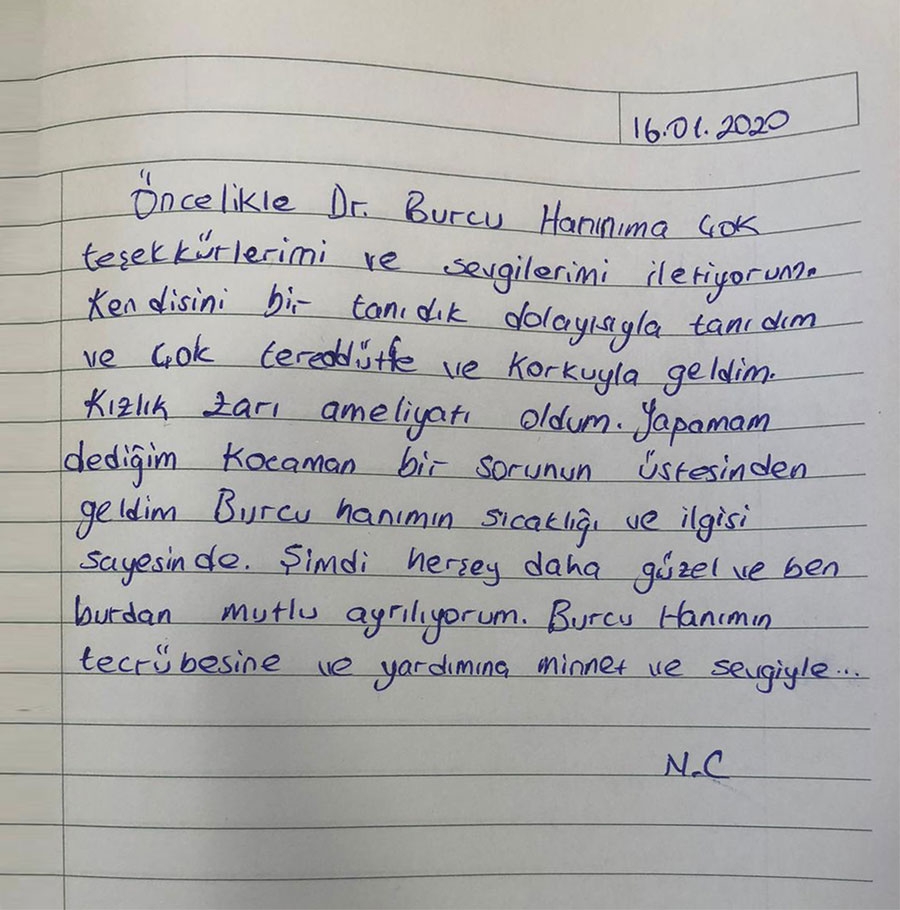 16.01.2020
Öncelikle Dr. Burcu Hanınıma çok
teşekkürlerimi ve sevgilerimi iletiyorum.
Kendisini bir tanıdık dolayısıyla tanıdım
ve çok tereddütle ve korkuyla geldim.
Kızlık zarı ameliyatı oldum. Yapamam
dediğim kocaman bir sorunun üstesinden
geldim Burcu hanımın sıcaklığı ve ilgisi
sayesinde. Şimdi herşey daha güzel ve ben
burdan mutlu ayrılıyorum. Burcu Hanımın
tecrübesine ve yardımına minnet ve sevgiyle...
N.C